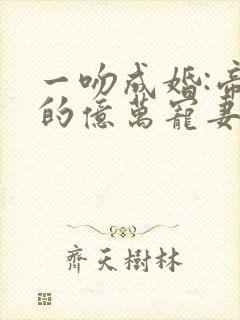 一吻成婚:帝
的億萬寵妻
齊天樹林